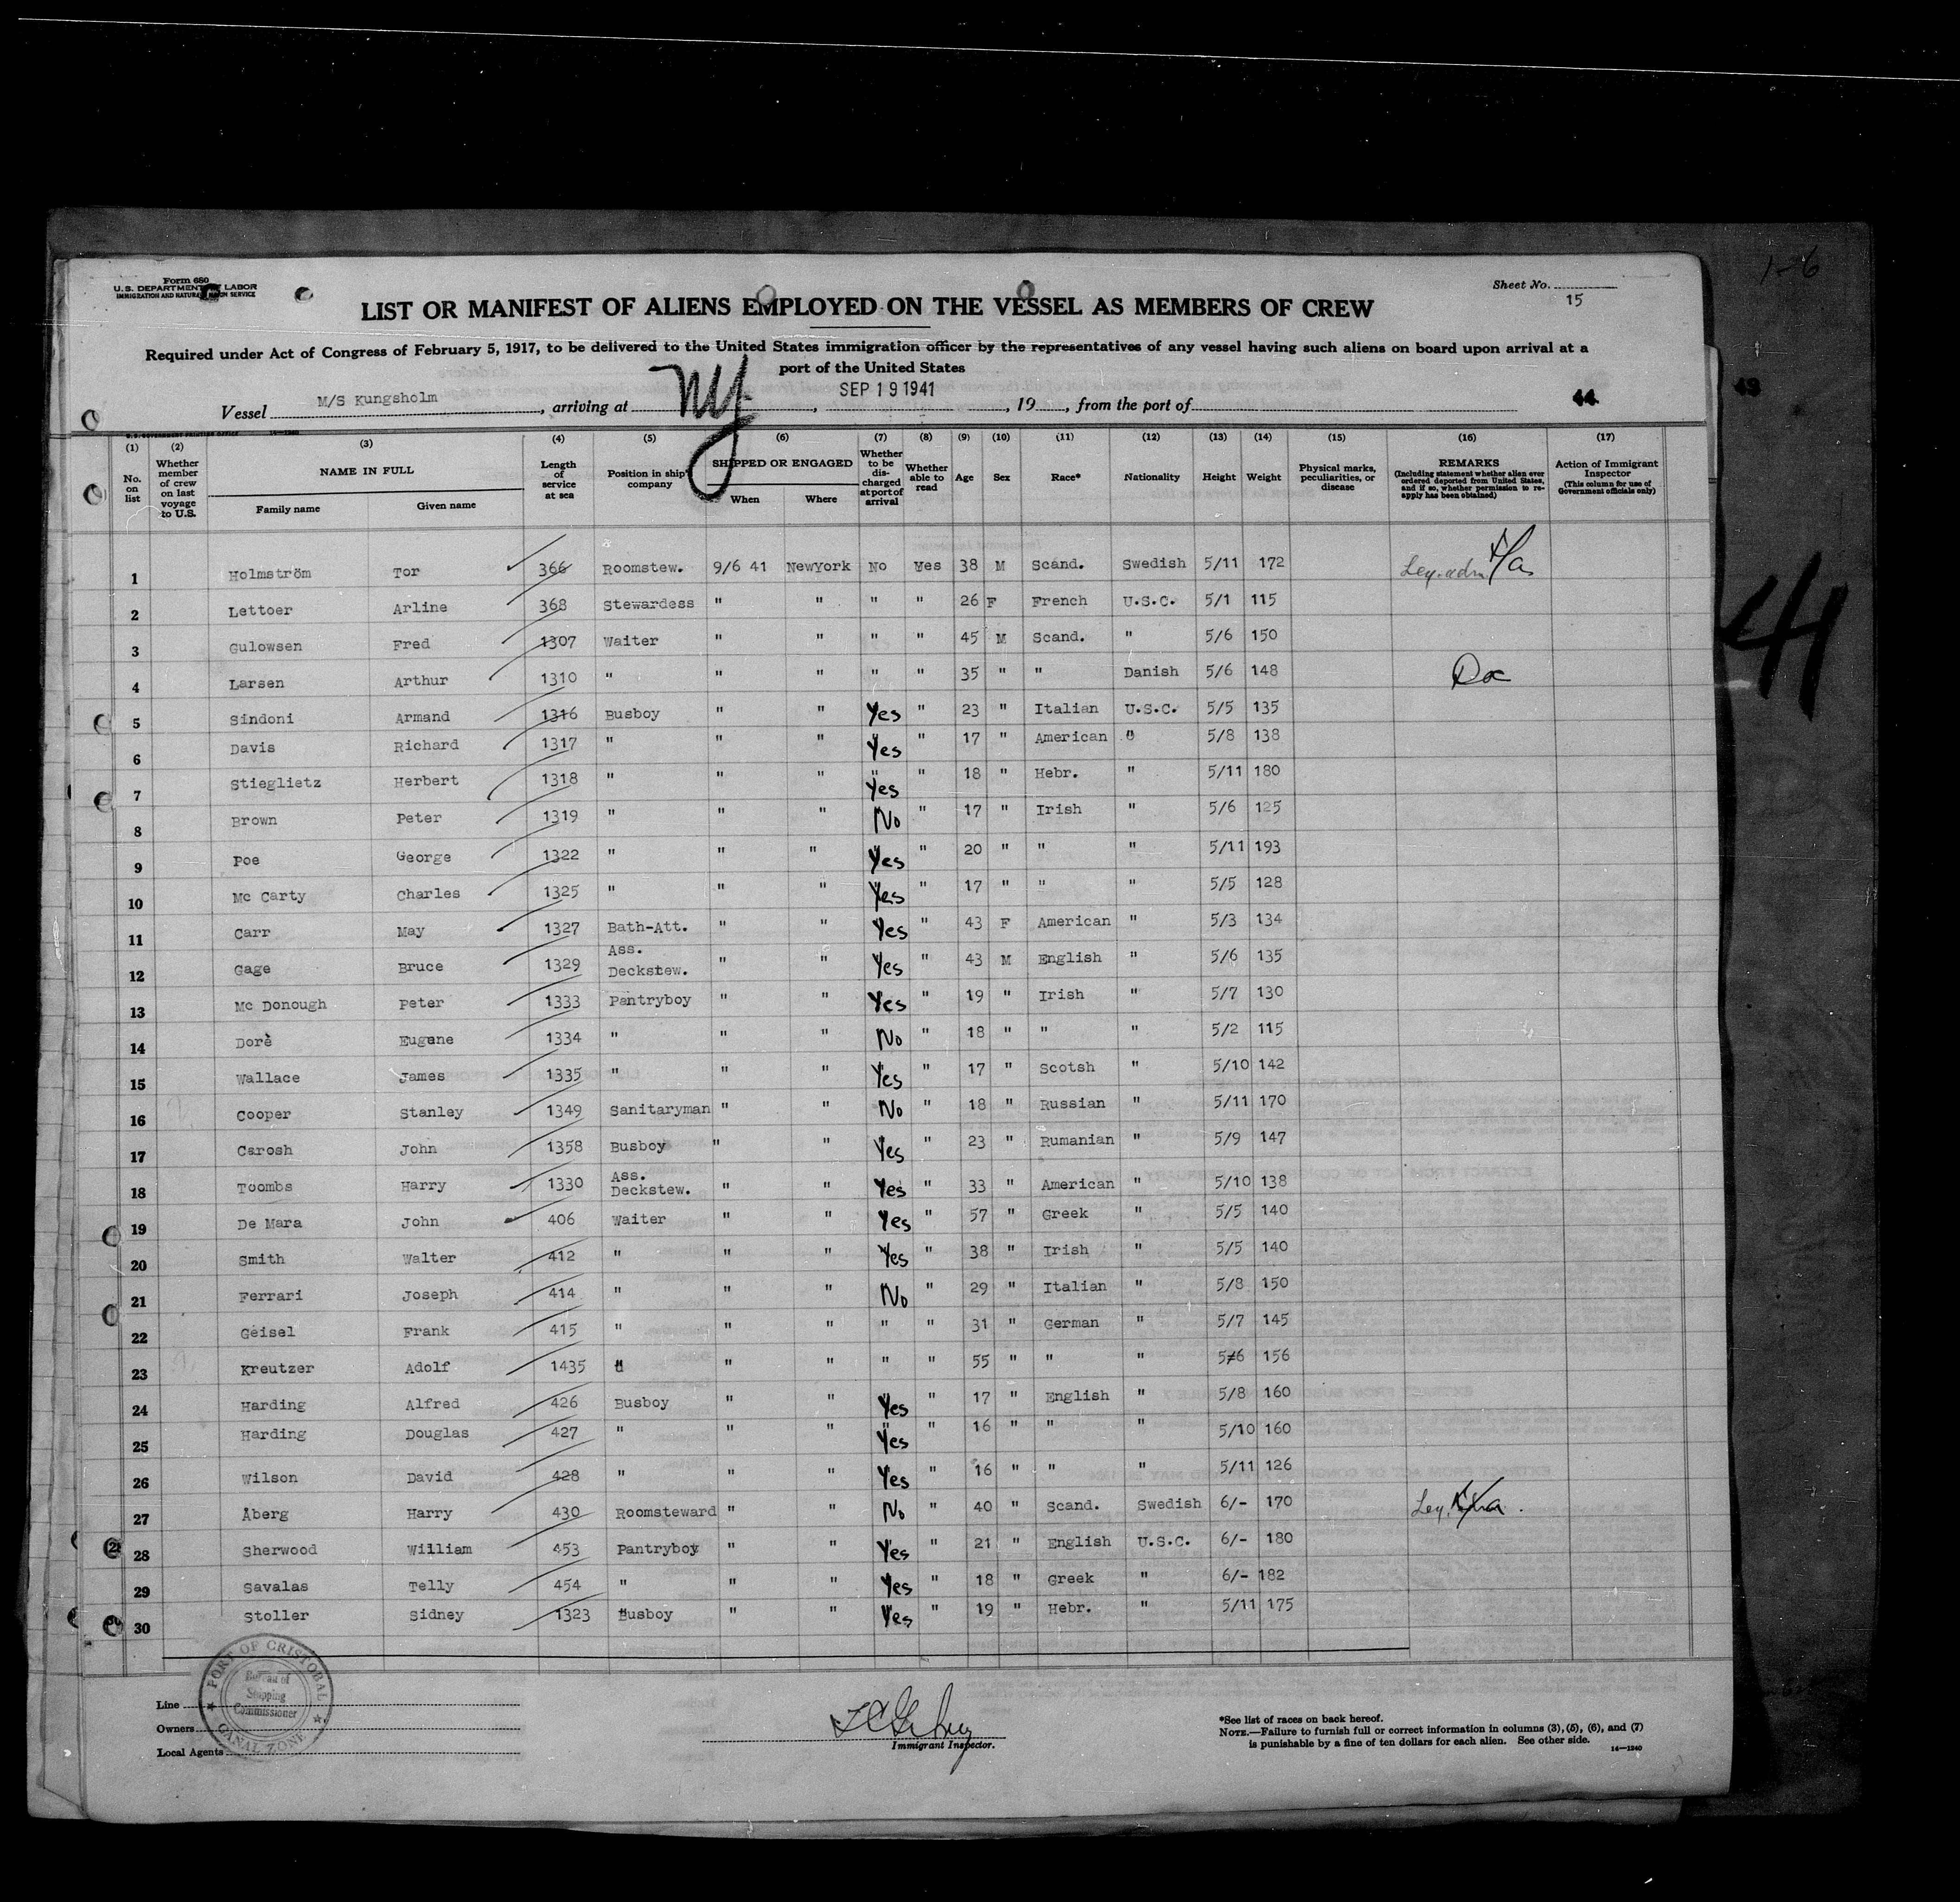 Form 680
U.S. DEPARTMENT OF LABOR
IMMIGRATION AND NATURALIZATION SERVICE
Sheet No.
15
1-6
LIST OR MANIFEST OF ALIENS EMPLOYED ON THE VESSEL AS MEMBERS OF CREW
Required under Act of Congress of February 5, 1917, to be delivered to the United States immigration officer by the representatives of any vessel having such aliens on board upon arrival at a
port of the United States
Vessel M/S Kungsholm, arriving at NY, SEP 19 1941, 19, from the port of
44
43
41
(1) (2) (3) (4) (5) (6) (7) (8) (9) (10) (11) (12) (13) (14) (15) (16) (17)
No. on list
Whether member of crew on last voyage to U.S.
NAME IN FULL
Family name
Given name
Length of service at sea
Position in ship's company
SHIPPED OR ENGAGED
When
Where
Whether to be discharged at port of arrival
Whether able to read
Age
Sex
Race*
Nationality
Height
Weight
Physical marks, peculiarities, or disease
REMARKS
(Including statement whether alien ever ordered deported from United States, and if so, whether permission to reapply has been obtained)
Action of Immigrant Inspector
(This column for use of Government officials only)
1 Holmström Tor 366 Roomstew. 9/6 41 NewYork No Yes 38 M Scand. Swedish 5/11 172
2 Lettoer Arline 368 Stewardess " " " " 26 F French U.S.C. 5/1 115
3 Gulowsen Fred 1307 Waiter " " " " 45 M Scand. " 5/6 150
4 Larsen Arthur 1310 " " " " " 35 " " Danish 5/6 148 Do
5 Sindoni Armand 1316 Busboy " " Yes " 23 " Italian U.S.C. 5/5 135
6 Davis Richard 1317 " " " Yes " 17 " American " 5/8 138
7 Stieglietz Herbert 1318 " " " " Yes " 18 " Hebr. " 5/11 180
8 Brown Peter 1319 " " " No " 17 " Irish " 5/6 125
9 Poe George 1322 " " " Yes " 20 " " " 5/11 193
10 Mc Carty Charles 1325 " " " Yes " 17 " " " 5/5 128
11 Carr May 1327 Bath-Att. " " Yes " 43 F American " 5/3 134
12 Gage Bruce 1329 Ass. Deckstew. " " Yes " 43 M English " 5/6 135
13 Mc Donough Peter 1333 Pantryboy " " Yes " 19 " Irish " 5/7 130
14 Dorè Eugene 1334 " " " No " 18 " " " 5/2 115
15 Wallace James 1335 " " " Yes " 17 " Scotsh " 5/10 142
16 Cooper Stanley 1349 Sanitaryman " " No " 18 " Russian " 5/11 170
17 Carosh John 1358 Busboy " " Yes " 23 " Rumanian " 5/9 147
18 Toombs Harry 1330 Ass. Deckstew. " " Yes " 33 " American " 5/10 138
19 De Mara John 406 Waiter " " Yes " 57 " Greek " 5/5 140
20 Smith Walter 412 " " " Yes " 38 " Irish " 5/5 140
21 Ferrari Joseph 414 " " " No " 29 " Italian " 5/8 150
22 Geisel Frank 415 " " " " " 31 " German " 5/7 145
23 Kreutzer Adolf 1435 " " " " " 55 " " " 5/6 156
24 Harding Alfred 426 Busboy " " Yes " 17 " English " 5/8 160
25 Harding Douglas 427 " " " Yes " 16 " " " 5/10 160
26 Wilson David 428 " " " Yes " 16 " " " 5/11 126
27 Åberg Harry 430 Roomsteward " " No " 40 " Scand. Swedish 6/- 170
28 Sherwood William 453 Pantryboy " " Yes " 21 " English U.S.C. 6/- 180
29 Savalas Telly 454 " " " Yes " 18 " Greek " 6/- 182
30 Stoller Sidney 1323 Busboy " " Yes " 19 " Hebr. " 5/11 175
PORT OF CRISTOBAL
Bureau of
Shipping
Commissioner
CANAL ZONE
Line
Owners
Local Agents
Immigrant Inspector.
*See list of races on back hereof.
NOTE.—Failure to furnish full or correct information in columns (3), (5), (6), and (7)
is punishable by a fine of ten dollars for each alien. See other side.
14—1240